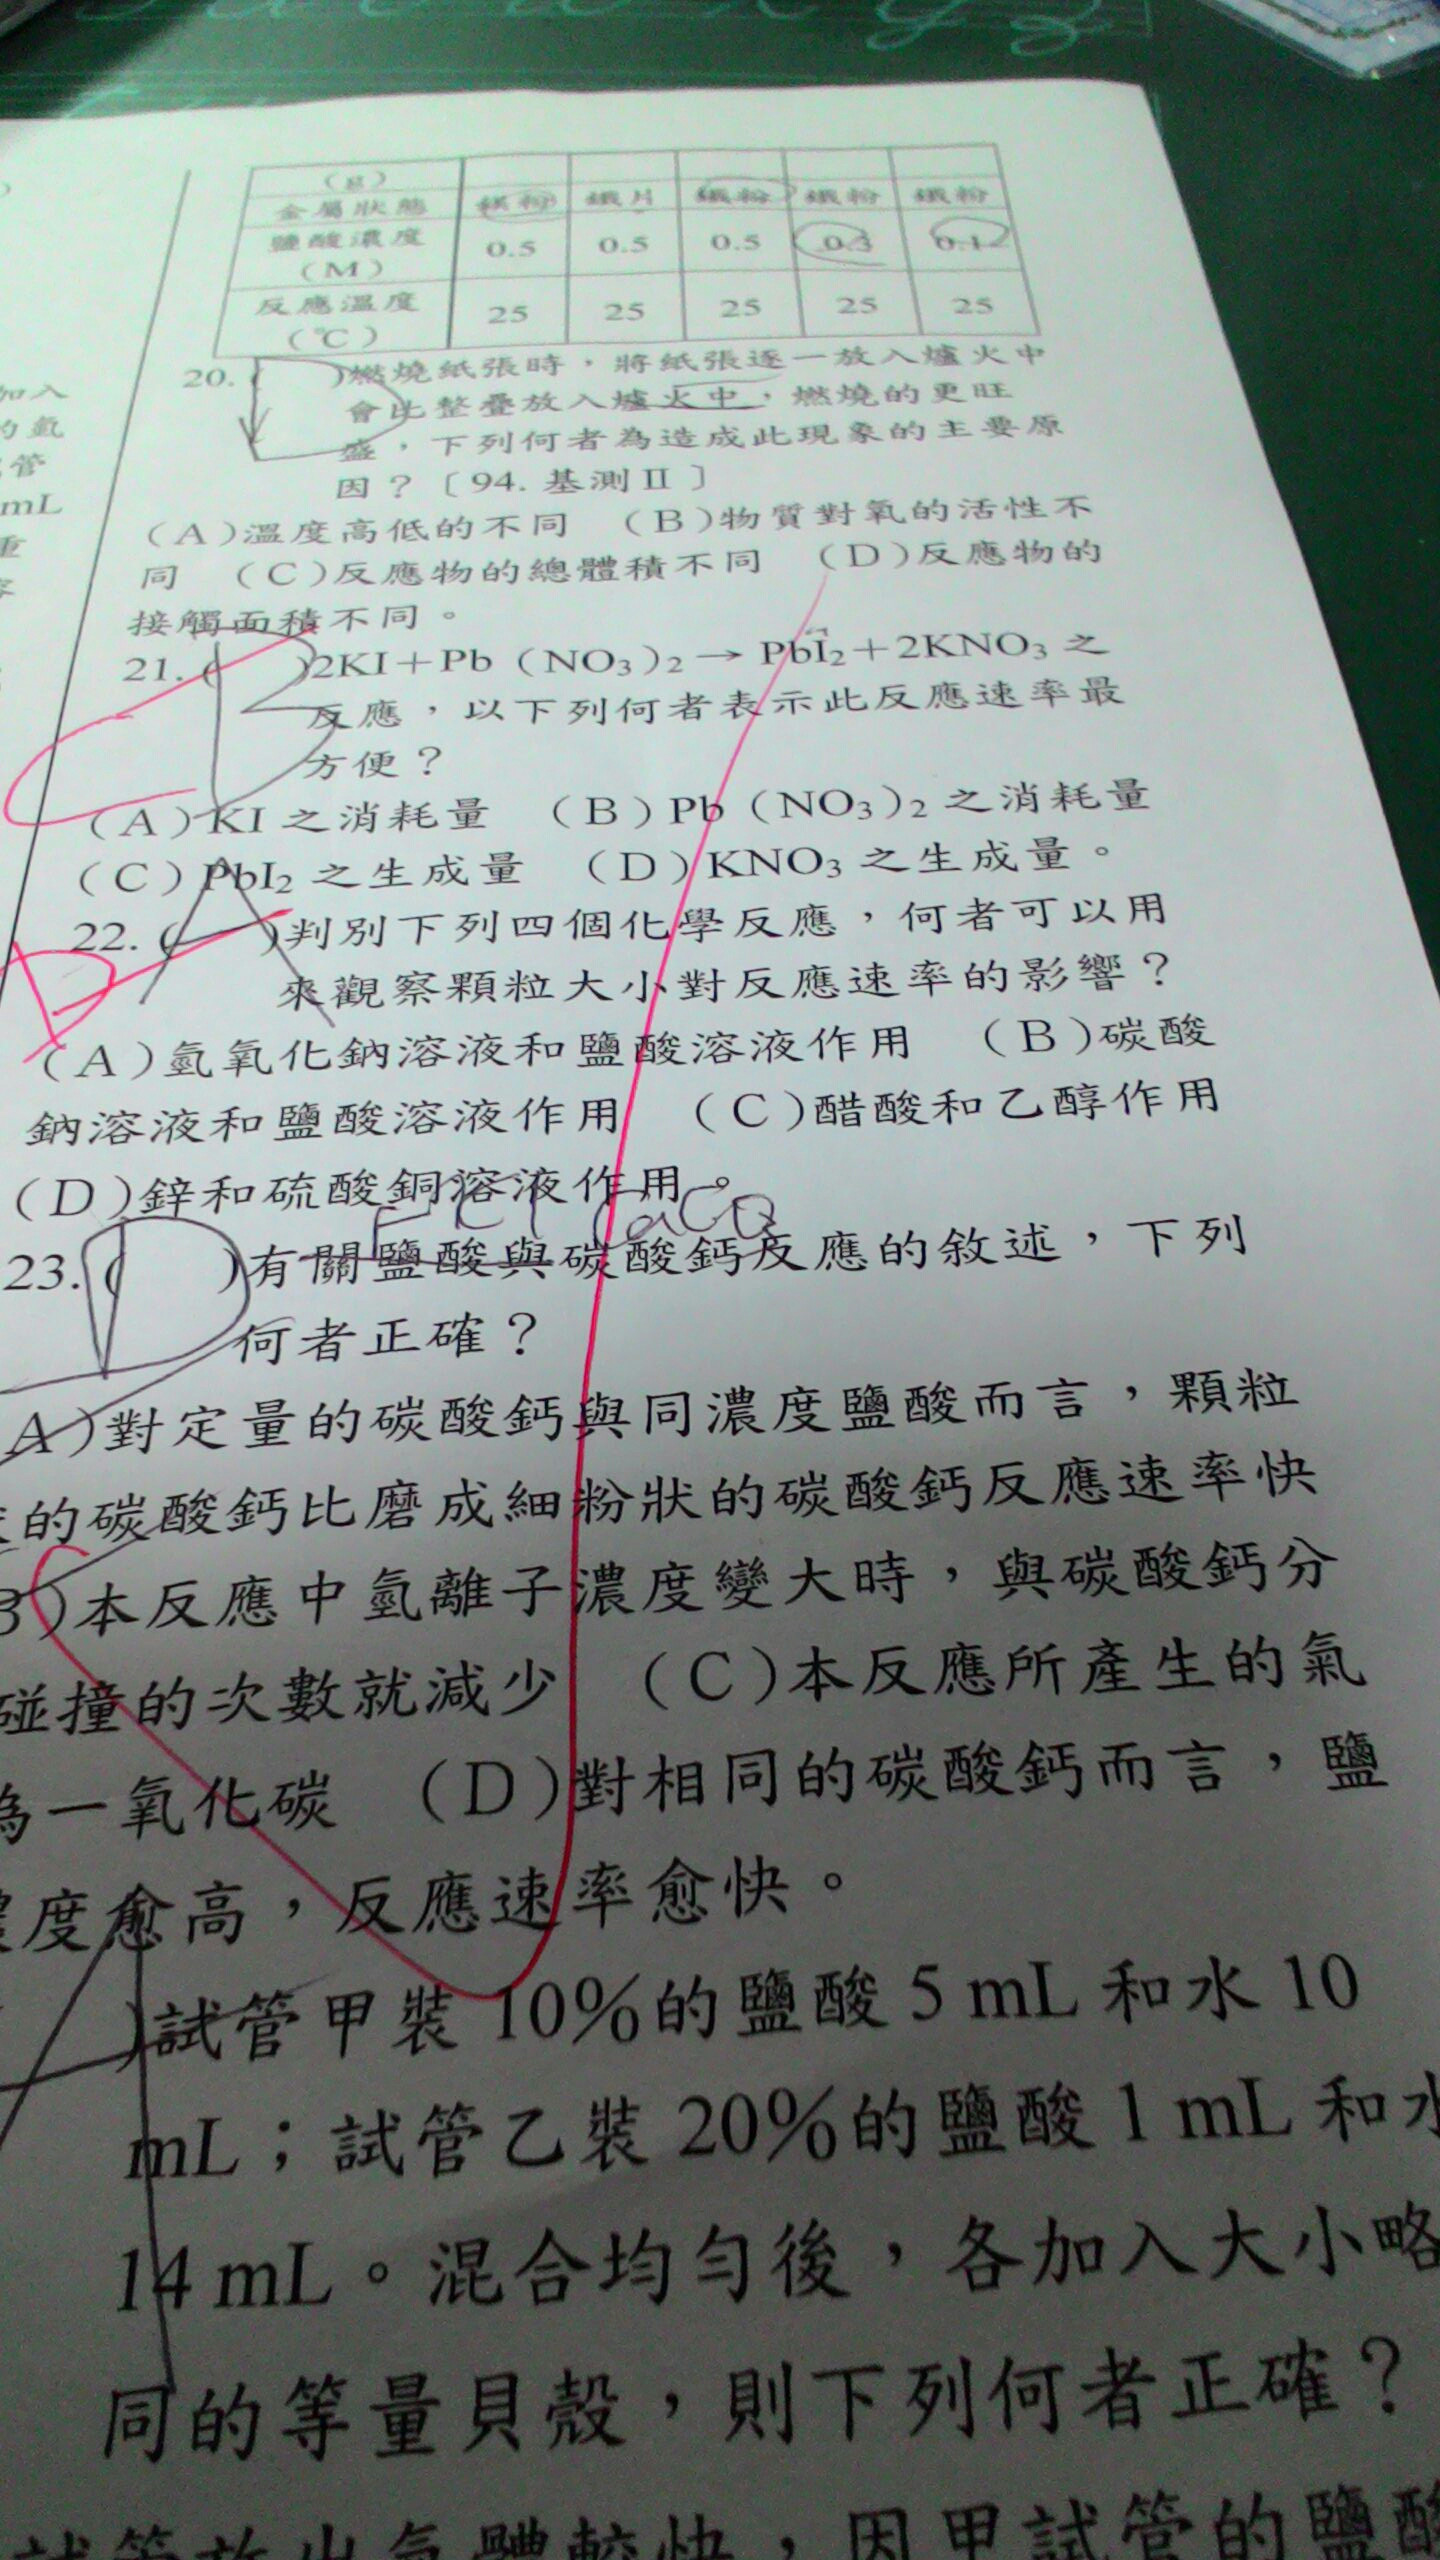 金屬狀態 鎂粉 鐵片 鐵粉 鐵粉 鐵粉
鹽酸濃度
（M） 0.5 0.5 0.5 0.3 0.1
反應溫度
（℃） 25 25 25 25 25
20.（D）燃燒紙張時，將紙張逐一放入爐火中
會比整疊放入爐火中，燃燒的更旺
盛，下列何者為造成此現象的主要原
因？〔94. 基測Ⅱ〕
（A）溫度高低的不同 （B）物質對氧的活性不
同 （C）反應物的總體積不同 （D）反應物的
接觸面積不同。
21.（D）2KI＋Pb（NO3）2→PbI2＋2KNO3 之
C
反應，以下列何者表示此反應速率最
方便？
（A）KI 之消耗量 （B）Pb（NO3）2 之消耗量
（C）PbI2 之生成量 （D）KNO3 之生成量。
22.（A）判別下列四個化學反應，何者可以用
D
來觀察顆粒大小對反應速率的影響？
（A）氫氧化鈉溶液和鹽酸溶液作用 （B）碳酸
鈉溶液和鹽酸溶液作用 （C）醋酸和乙醇作用
（D）鋅和硫酸銅溶液作用。
23.（D）有關鹽酸與碳酸鈣反應的敘述，下列
何者正確？
A）對定量的碳酸鈣與同濃度鹽酸而言，顆粒
的碳酸鈣比磨成細粉狀的碳酸鈣反應速率快
B）本反應中氫離子濃度變大時，與碳酸鈣分
碰撞的次數就減少 （C）本反應所產生的氣
為一氧化碳 （D）對相同的碳酸鈣而言，鹽
濃度愈高，反應速率愈快。
）試管甲裝 10%的鹽酸 5 mL 和水 10
mL；試管乙裝 20%的鹽酸 1 mL 和水
14 mL。混合均勻後，各加入大小略
同的等量貝殼，則下列何者正確？
試管放出氣體較快，因甲試管的鹽酸
加入
的氣
管
mL
重